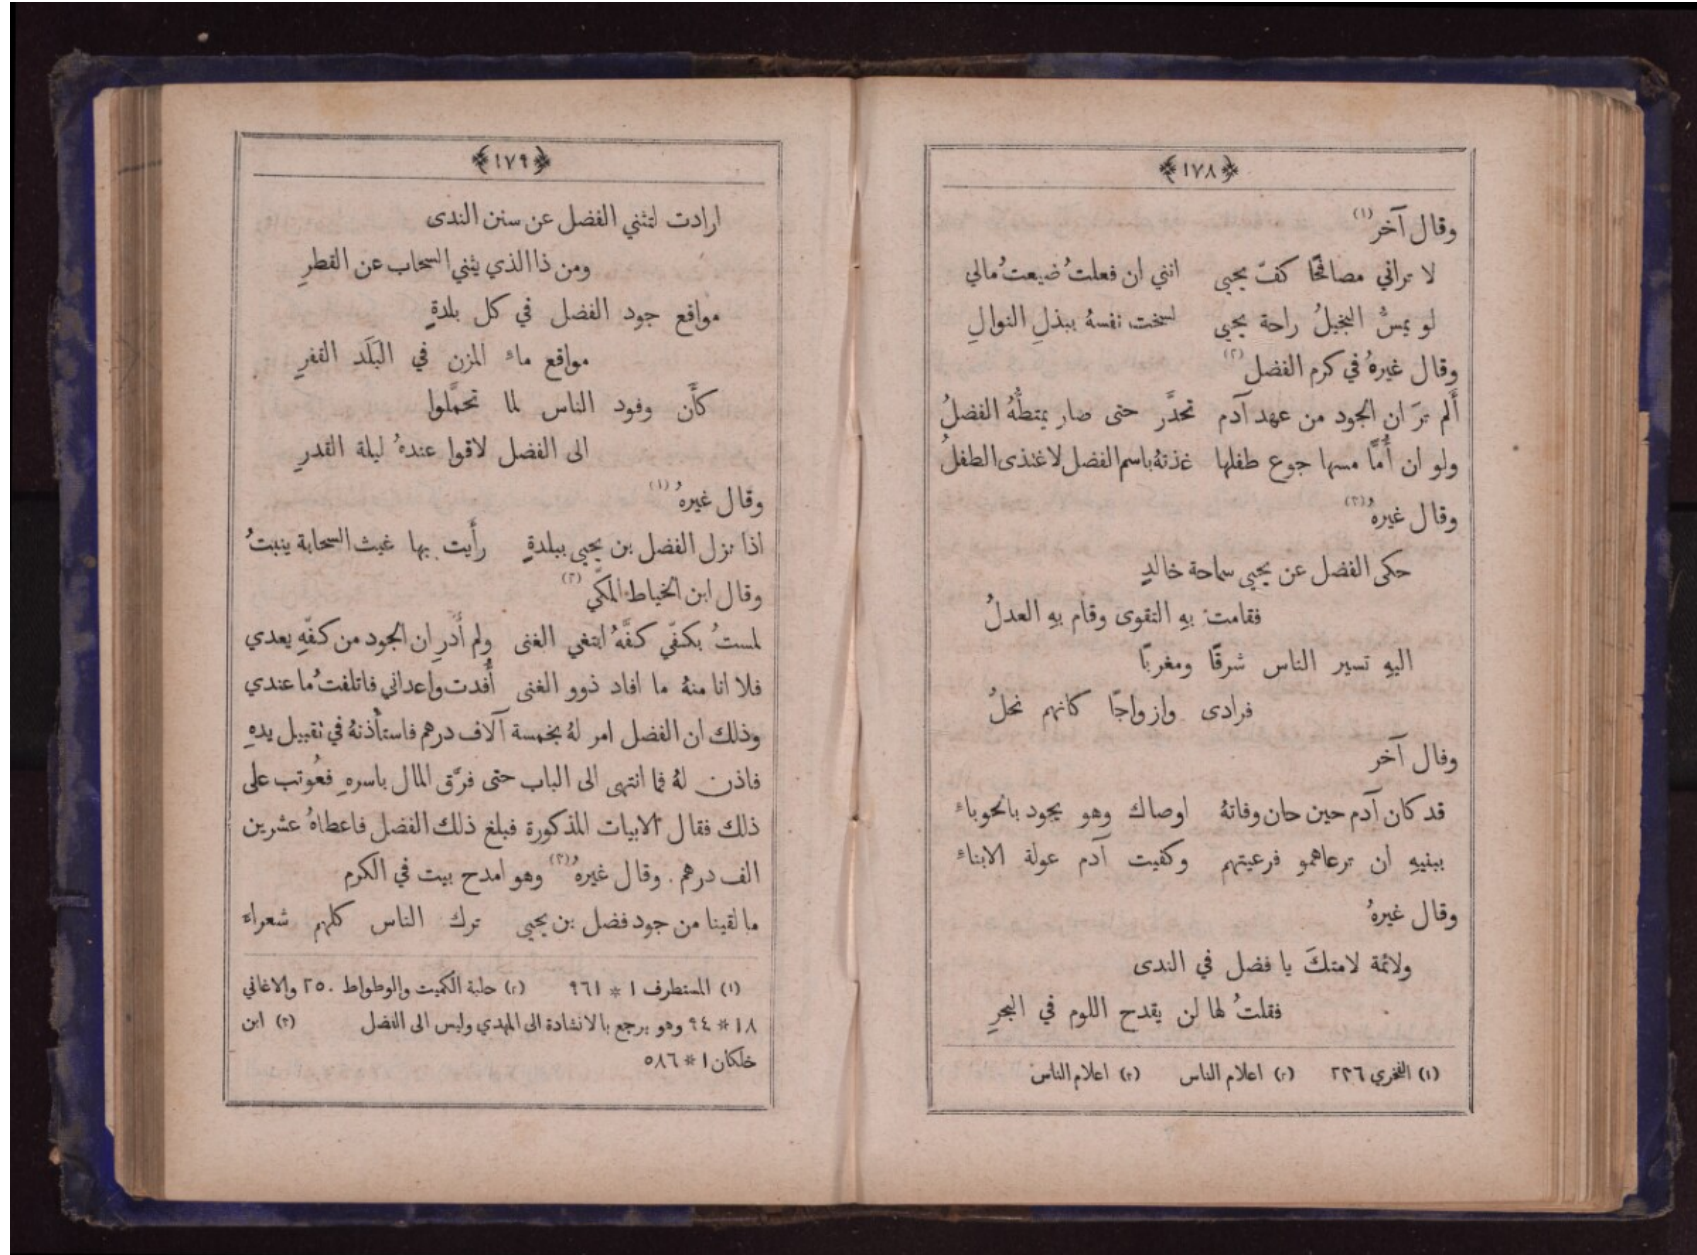 ﴿١٧٨﴾
وقال آخر (١)
لا تراني مصافحًا كفّ يحيى   انني ان فعلتُ ضيعتُ مالي
لو يمسُّ البخيلُ راحة يحيى   لسخت نفسهُ ببذلِ النوالِ
وقال غيرهُ في كرم الفضل (٢)
أَلم ترَ ان الجود من عهد آدم   تحدَّر حتى صار يمتطُّهُ الفضلُ
ولو ان أُمًّا مسها جوع طفلها   غذتهُ باسم الفضل لاغتذى الطفلُ
وقال غيرهُ (٣)
حكى الفضل عن يحيى سماحة خالدٍ
فقامت بهِ التقوى وقام بهِ العدلُ
اليهِ تسير الناس شرقًا ومغربًا
فرادى وازواجًا كانهم نحلُ
وقال آخر
قد كان آدم حين حان وفاتهُ   اوصاك وهو يجود بالحوباء
ببنيهِ ان ترعاهمو فرعيتهم   وكفيت آدم عولة الابناء
وقال غيرهُ
ولائمة لامتكَ يا فضل في الندى
فقلتُ لها لن يقدح اللوم في البحرِ
(١) الفخري ٢٢٦   (٢) اعلام الناس   (٣) اعلام الناس
﴿١٧٩﴾
ارادت لتثني الفضل عن سنن الندى
ومن ذا الذي يثني السحاب عن القطرِ
مواقع جود الفضل في كل بلدةٍ
مواقع ماء المزن في البَلَد القفرِ
كأَن وفود الناس لما تحمَّلوا
الى الفضل لاقوا عندهُ ليلة القدرِ
وقال غيرهُ (١)
اذا نزل الفضل بن يحيى ببلدةٍ   رأَيت بها غيث السحابة ينبتُ
وقال ابن الخياط المكّي (٢)
لمستُ بكفّي كفَّهُ ابتغي الغنى   ولم أَدرِ ان الجود من كفّهِ يعدي
فلا انا منهُ ما افاد ذوو الغنى   أُفدت واعداني فاتلفتُ ما عندي
وذلك ان الفضل امر لهُ بخمسة آلاف درهم فاستأذنهُ في تقبيل يدهِ
فاذن لهُ فما انتهى الى الباب حتى فرَّق المال باسرهِ فعُوتب على
ذلك فقال الابيات المذكورة فبلغ ذلك الفضل فاعطاهُ عشرين
الف درهم . وقال غيرهُ (٣) وهو امدح بيت في الكرم
ما لقينا من جود فضل بن يحيى   ترك الناس كلهم شعراء
(١) المستطرف ١ * ٩٦١   (٢) حلبة الكميت والوطواط ٢٥٠ والاغاني
١٨ * ٩٤ وهو يرجع بالانشادة الى المهدي وليس الى الفضل   (٣) ابن
خلكان ١ * ٥٨٦